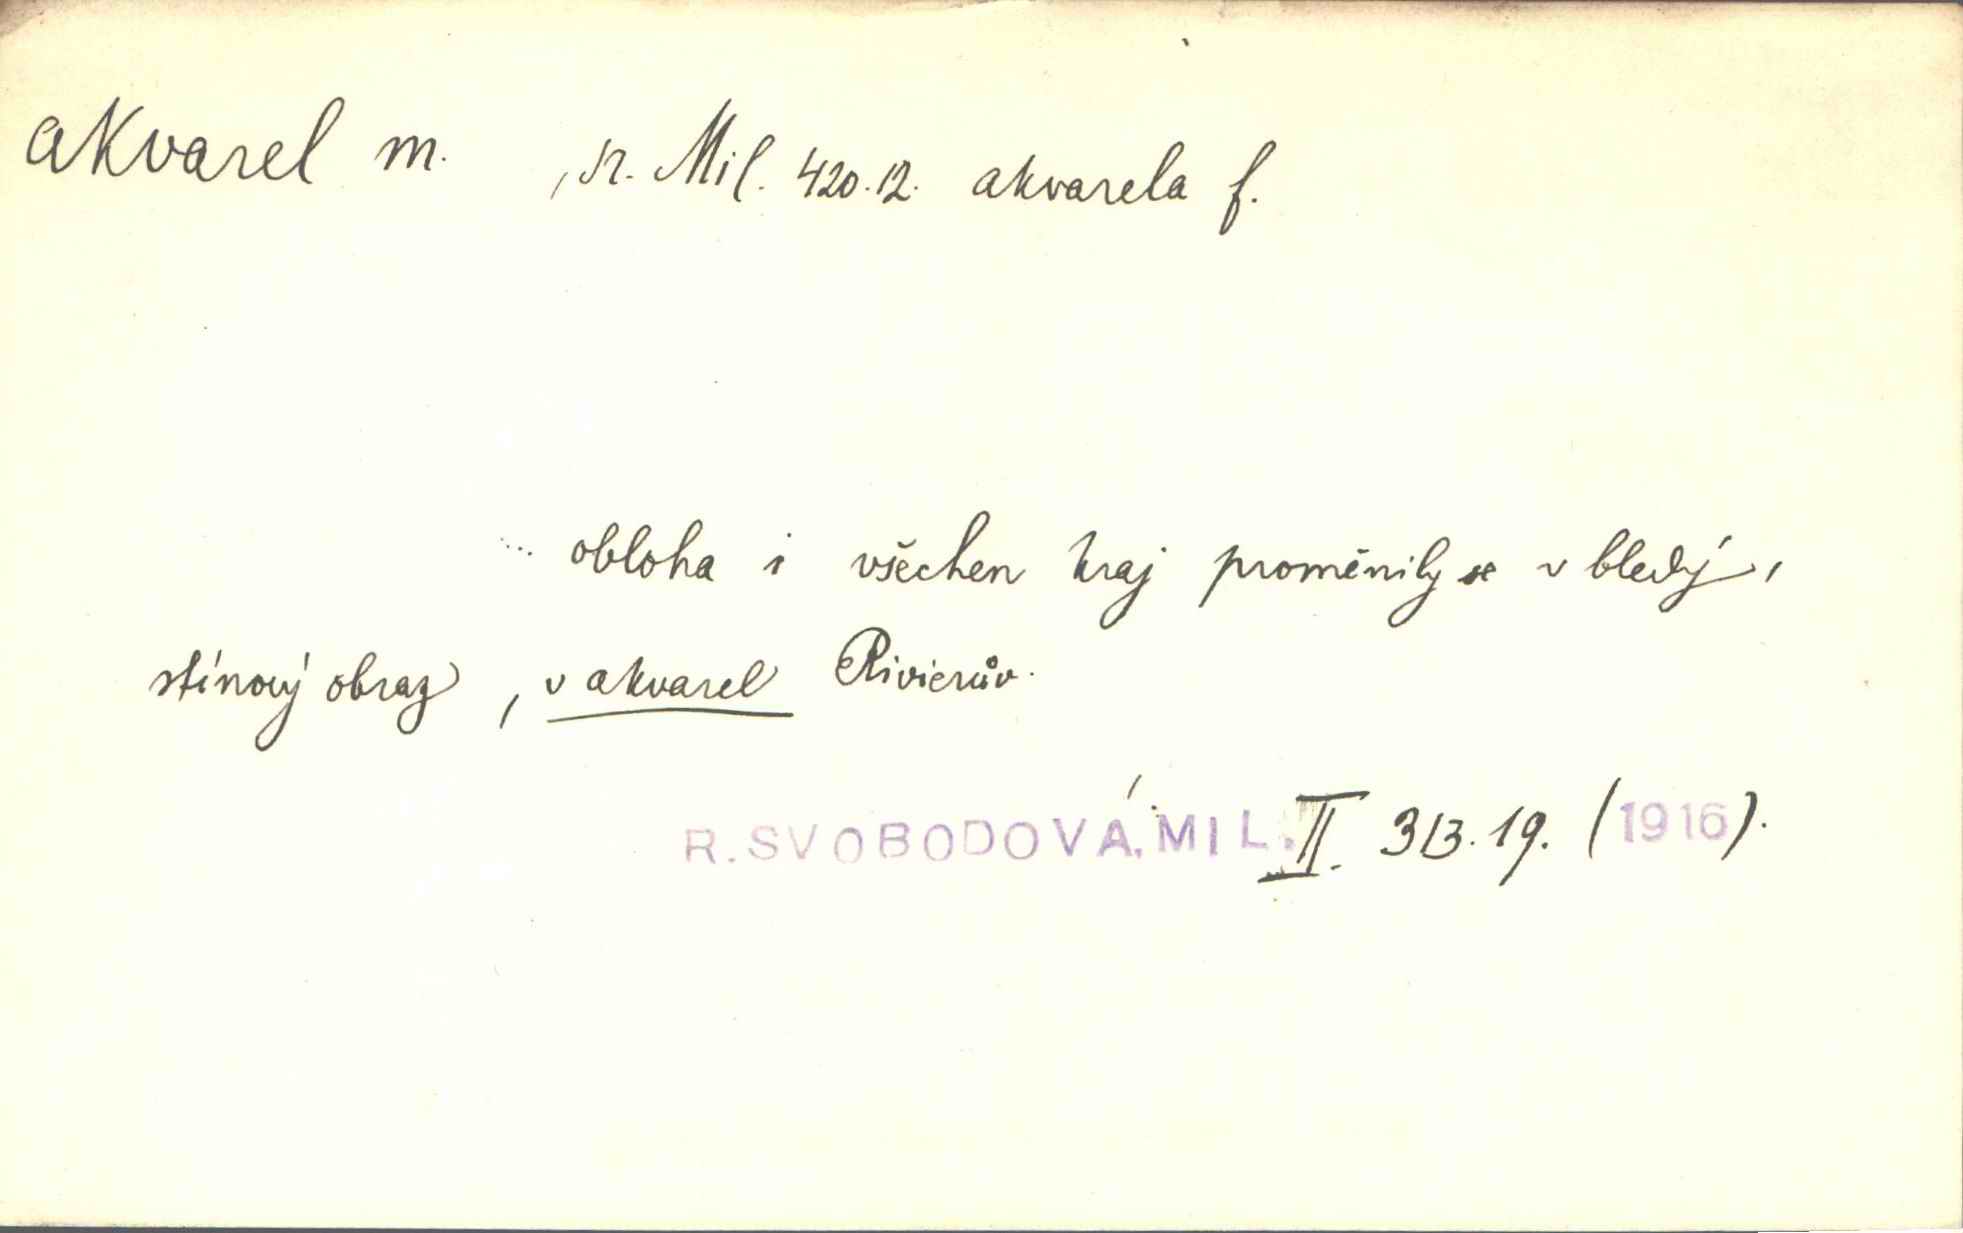 akvarel m. , sr. Mil. 420.12. akvarela f.
... obloha i všechen kraj proměnily se v bledý,
stínový obraz, v akvarel Rivierův.
R. SVOBODOVÁ, MIL. II. 313.19. (1916).